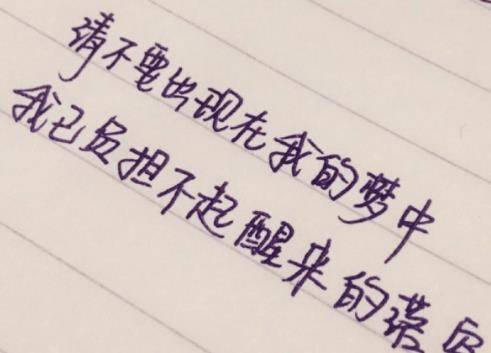 请不要出现在我的梦中
我已负担不起醒来的落